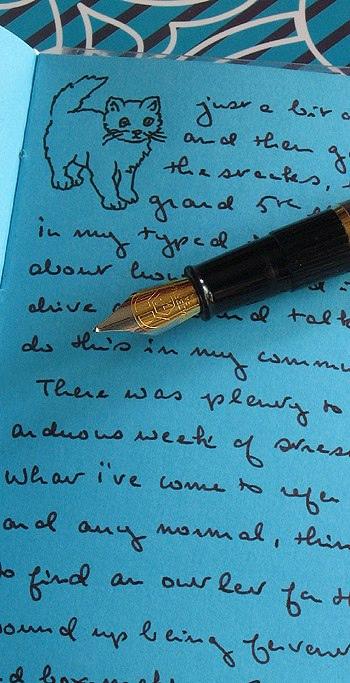 just a bit
and then
the snacks,
grand 5K
in my typed
about how
drive and talk
do this in my
There was plenty to
arduous week of stress
what i've come to refer
and any normal, thin
to find an outlet for
wound up being